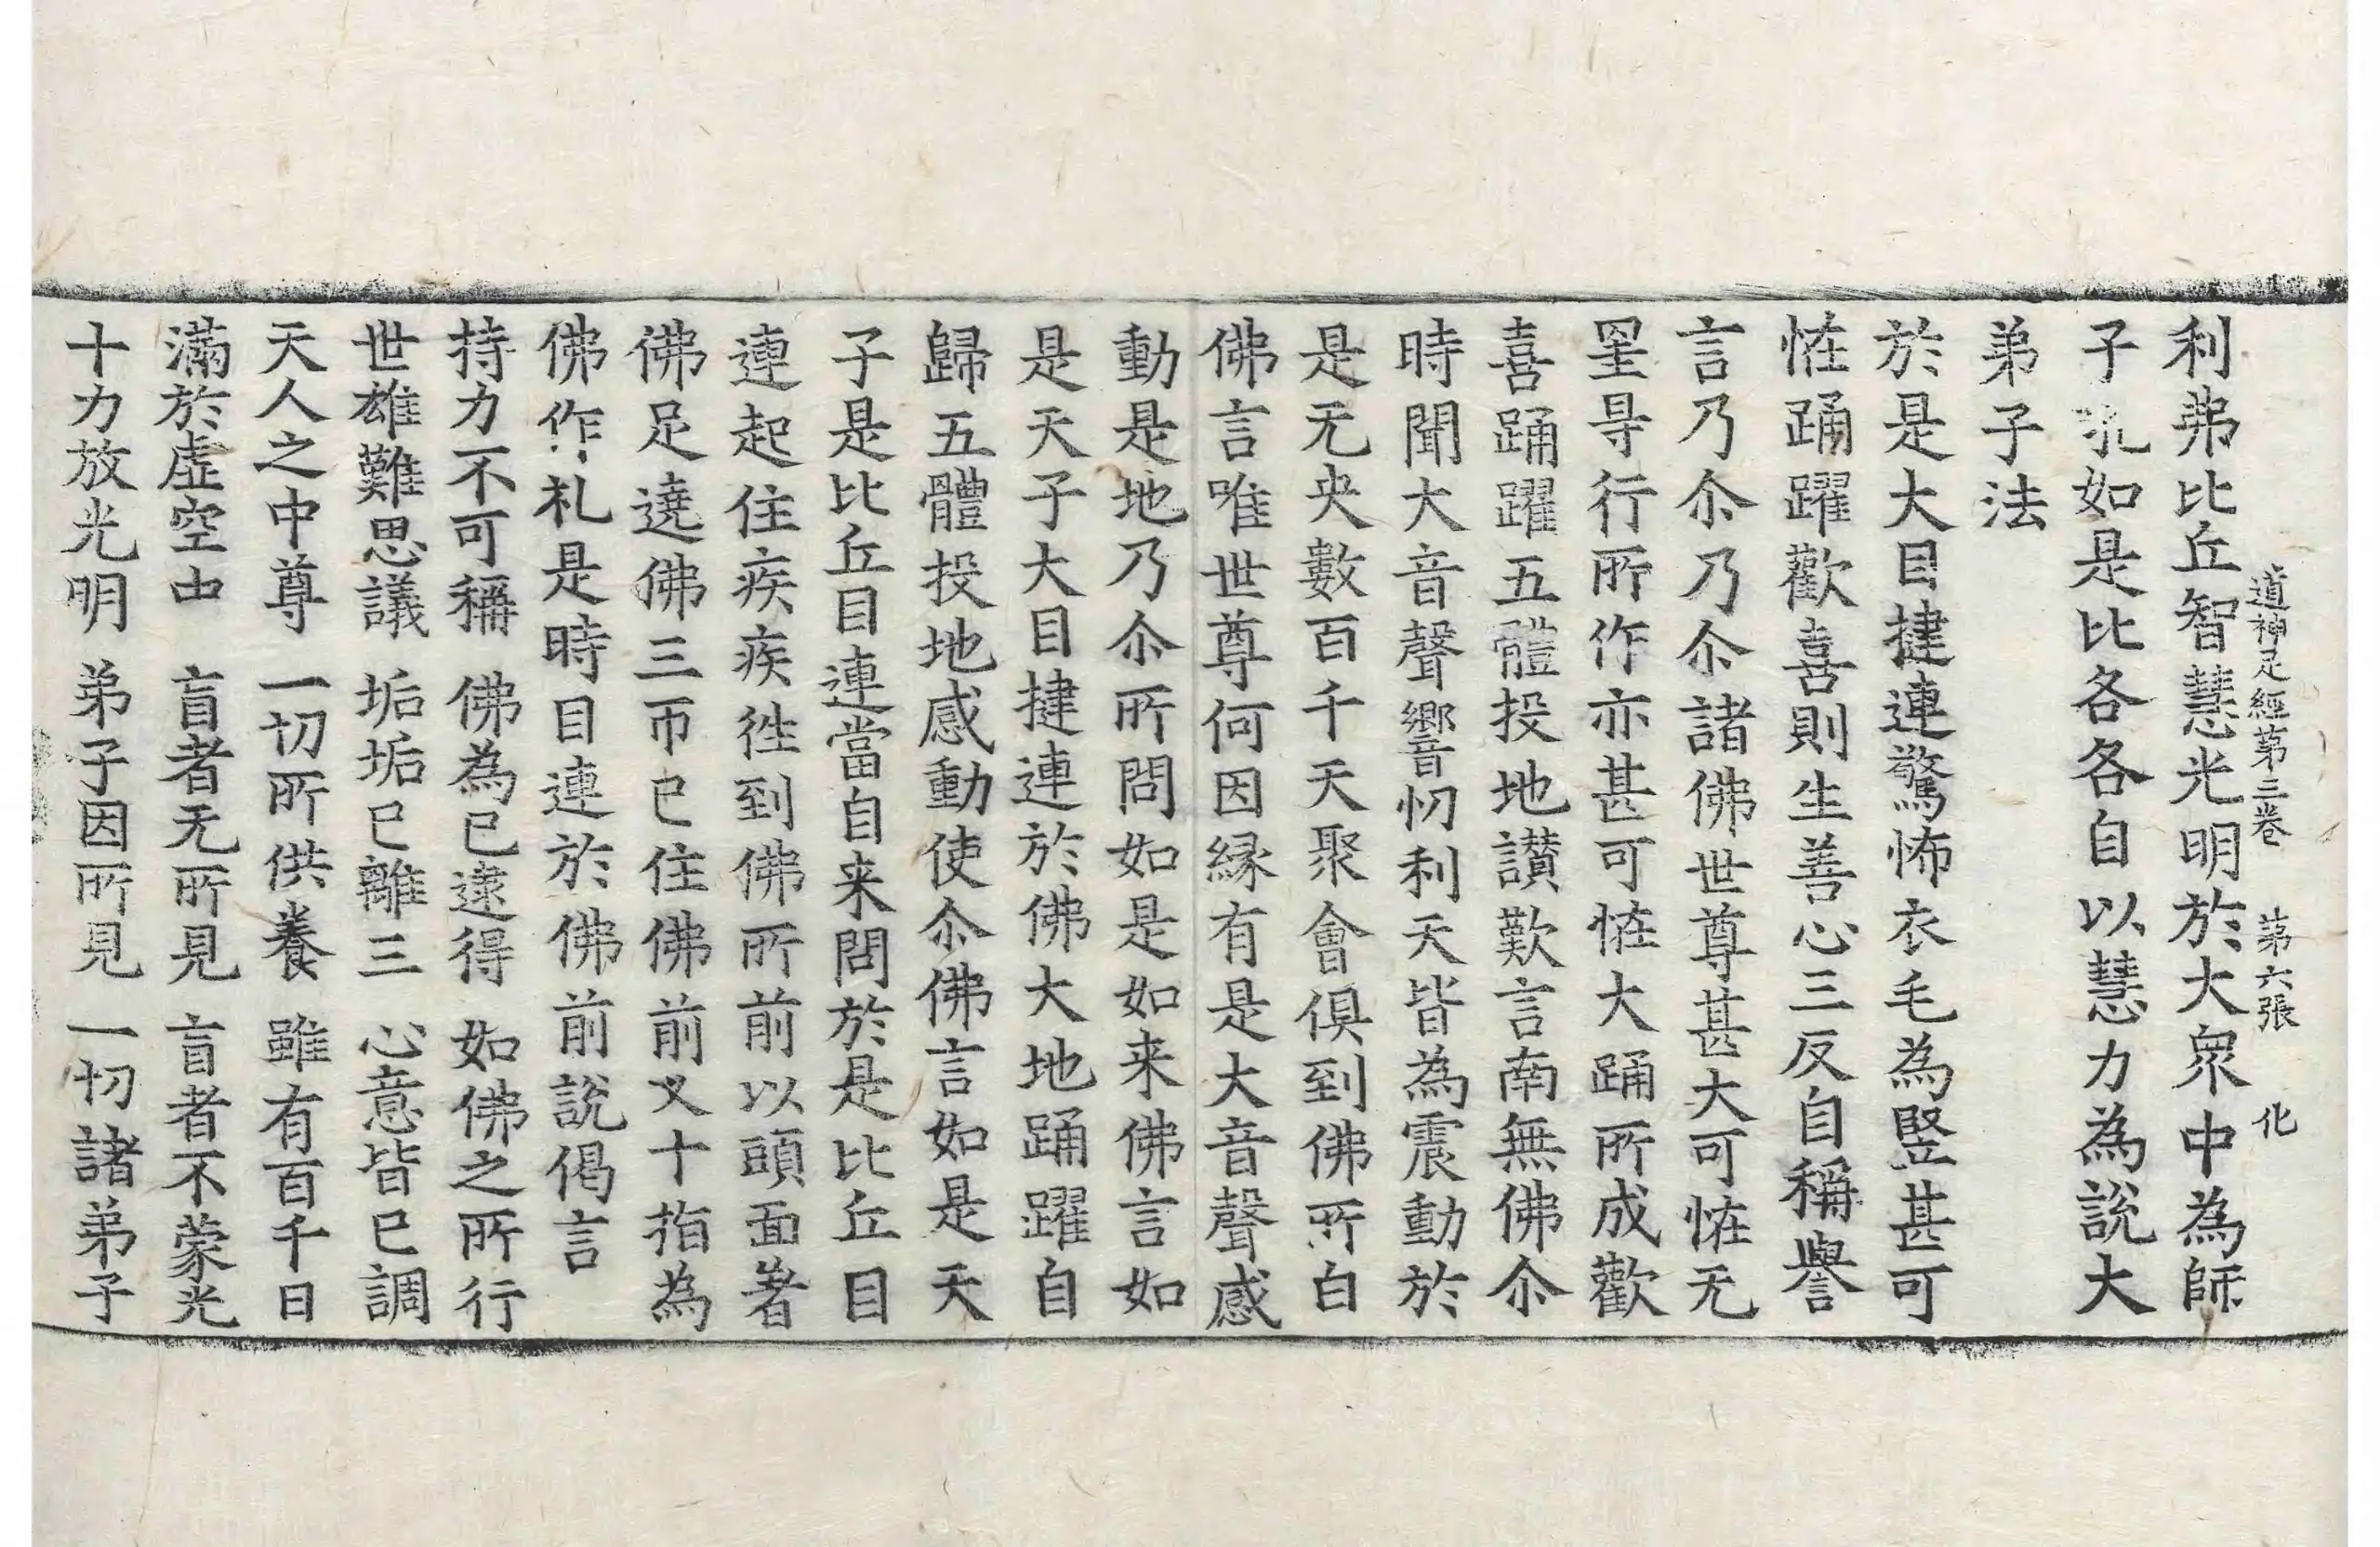 道神足經第三卷　第六張　化
利弗比丘智慧光明於大衆中為師
子吼如是比各各自以慧力為說大
弟子法
於是大目揵連驚怖衣毛為竪甚可
恠踊躍歡喜則生善心三反自稱譽
言乃尒乃尒諸佛世尊甚大可恠无
罣㝵行所作亦甚可恠大踊所成歡
喜踊躍五體投地讃歎言南無佛尒
時聞大音聲響忉利天皆為震動於
是无央數百千天聚會俱到佛所白
佛言唯世尊何因縁有是大音聲感
動是地乃尒所問如是如来佛言如
是天子大目揵連於佛大地踊躍自
歸五體投地感動使尒佛言如是天
子是比丘目連當自来問於是比丘目
連起住疾疾徃到佛所前以頭面着
佛足遶佛三帀已住佛前叉十指為
佛作礼是時目連於佛前說偈言
持力不可稱　佛為已逮得　如佛之所行
世雄難思議　垢垢已離三　心意皆已調
天人之中尊　一切所供養　雖有百千日
滿於虛空由　盲者无所見　盲者不蒙光
十力放光明　弟子因所見　一切諸弟子